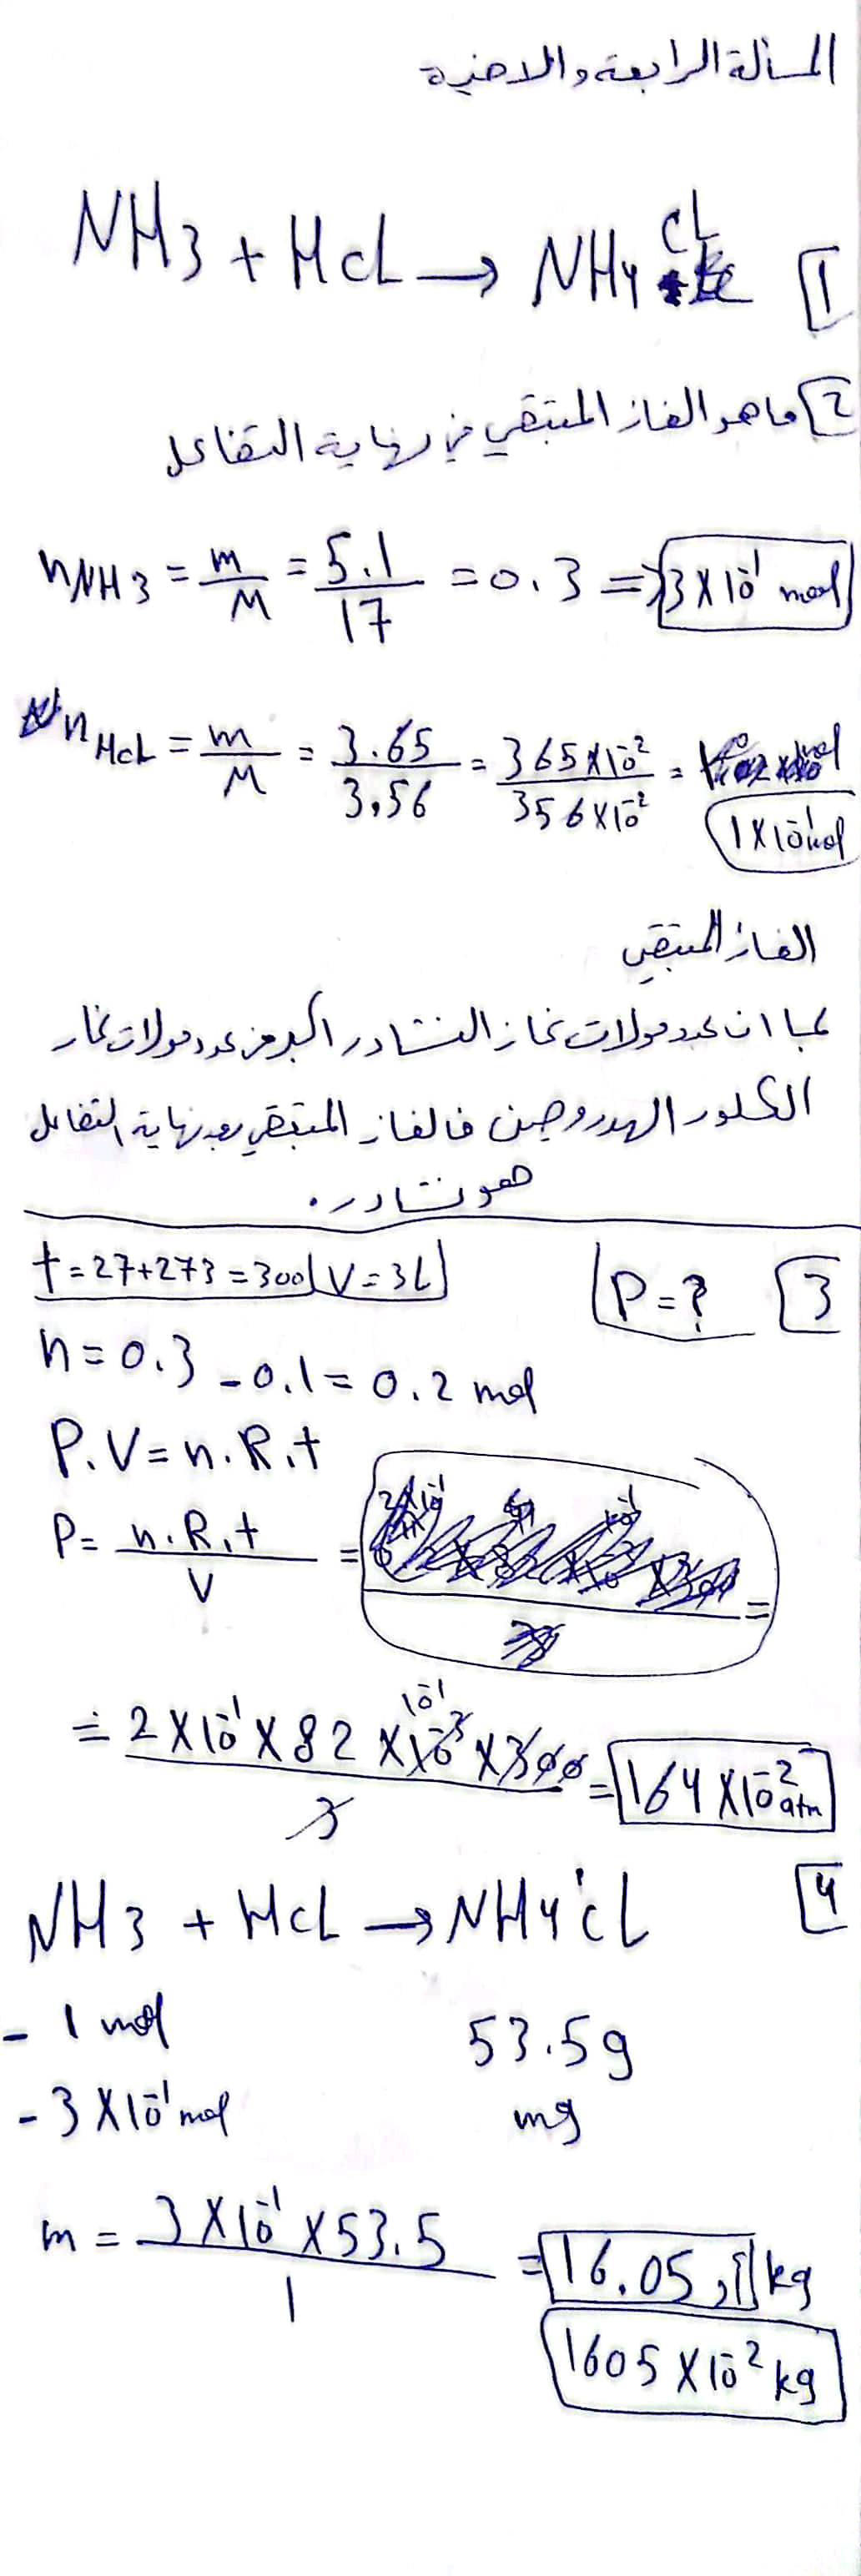 المسألة الرابعة والاخيرة
NH3 + HcL → NH4 CL [1]
[2] ما هو الغاز المتبقي في نهاية التفاعل
nNH3 = m/M = 5.1/17 = 0.3 ⇒ 3×10⁻¹ mol
nHcL = m/M = 3.65/3.56 = 365×10⁻²/356×10⁻² = 1×10⁻¹mol
الغاز المتبقي
بما ان عدد مولات غاز النشادر اكبر من عدد مولات غاز
الكلور الهدروجين فالغاز المتبقي بعد نهاية التفاعل
هو نشادر.
t=27+273=300 V=3L P=? [3]
n=0.3 - 0.1 = 0.2 mol
P.V=n.R.t
P= n.R.t/V =
= 2×10⁻¹×82×10⁻³×300/3 = 164×10⁻² atm
10⁻¹
NH3 + HcL → NH4cL [4]
- 1 mol 53.5g
- 3×10⁻¹mol mg
m = 3×10⁻¹×53.5/1 = 16.05 kg
1605×10⁻² kg